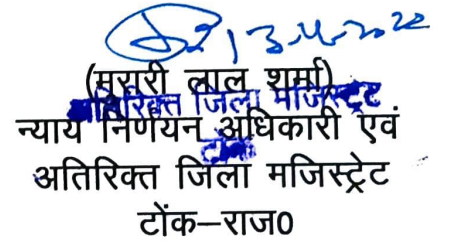 13-4-2022
(मुरारी लाल शर्मा)
अतिरिक्त जिला मजिस्ट्रेट
न्याय निर्णयन अधिकारी एवं
टोंक
अतिरिक्त जिला मजिस्ट्रेट
टोंक–राज0